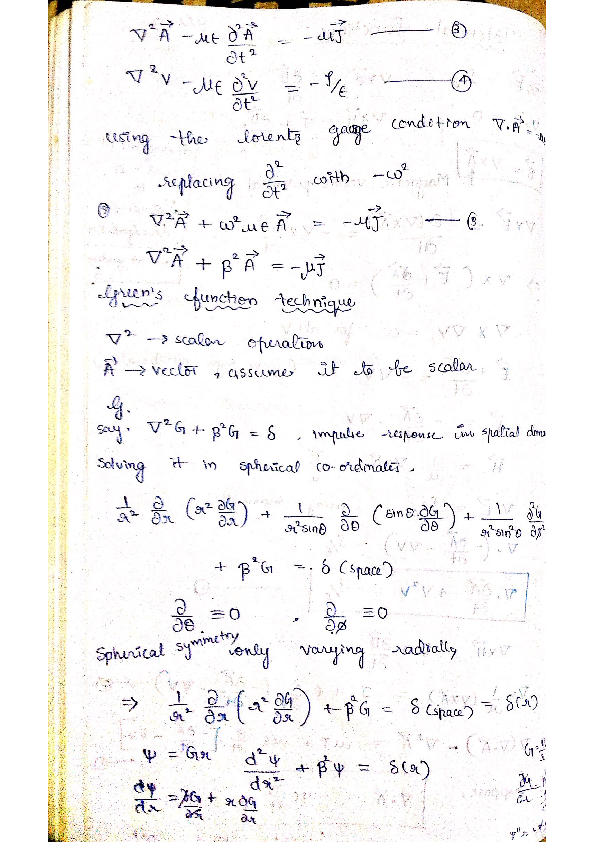 ∇²A⃗ - με ∂²A⃗/∂t² = -μJ⃗ ——— ③
∇²V - με ∂²V/∂t² = -ρ/ε ——— ④
using the lorentz gauge condition ∇.A⃗ =
replacing ∂²/∂t² with -ω²
∇²A⃗ + ω²με A⃗ = -μJ⃗ ——
∇²A⃗ + β²A⃗ = -μJ⃗
Green's function technique
∇² → scalar operation
A⃗ → vector, assume it to be scalar
G.
say. ∇²G + β²G = δ , impulse response in spatial
Solving it in spherical co-ordinates.
1/r² ∂/∂r (r² ∂G/∂r) + 1/r²sinθ ∂/∂θ (sinθ ∂G/∂θ) + 1/r²sin²θ ∂²G/∂ø²
+ β²G = δ (space)
∂/∂θ ≡ 0 , ∂/∂ø ≡ 0
Spherical symmetry only varying radially
⇒ 1/r² ∂/∂r (r² ∂G/∂r) + β²G = δ (space) = δ(r)
ψ = Gr d²ψ/dr² + β²ψ = δ(r)
dψ/dr = + r ∂G/∂r